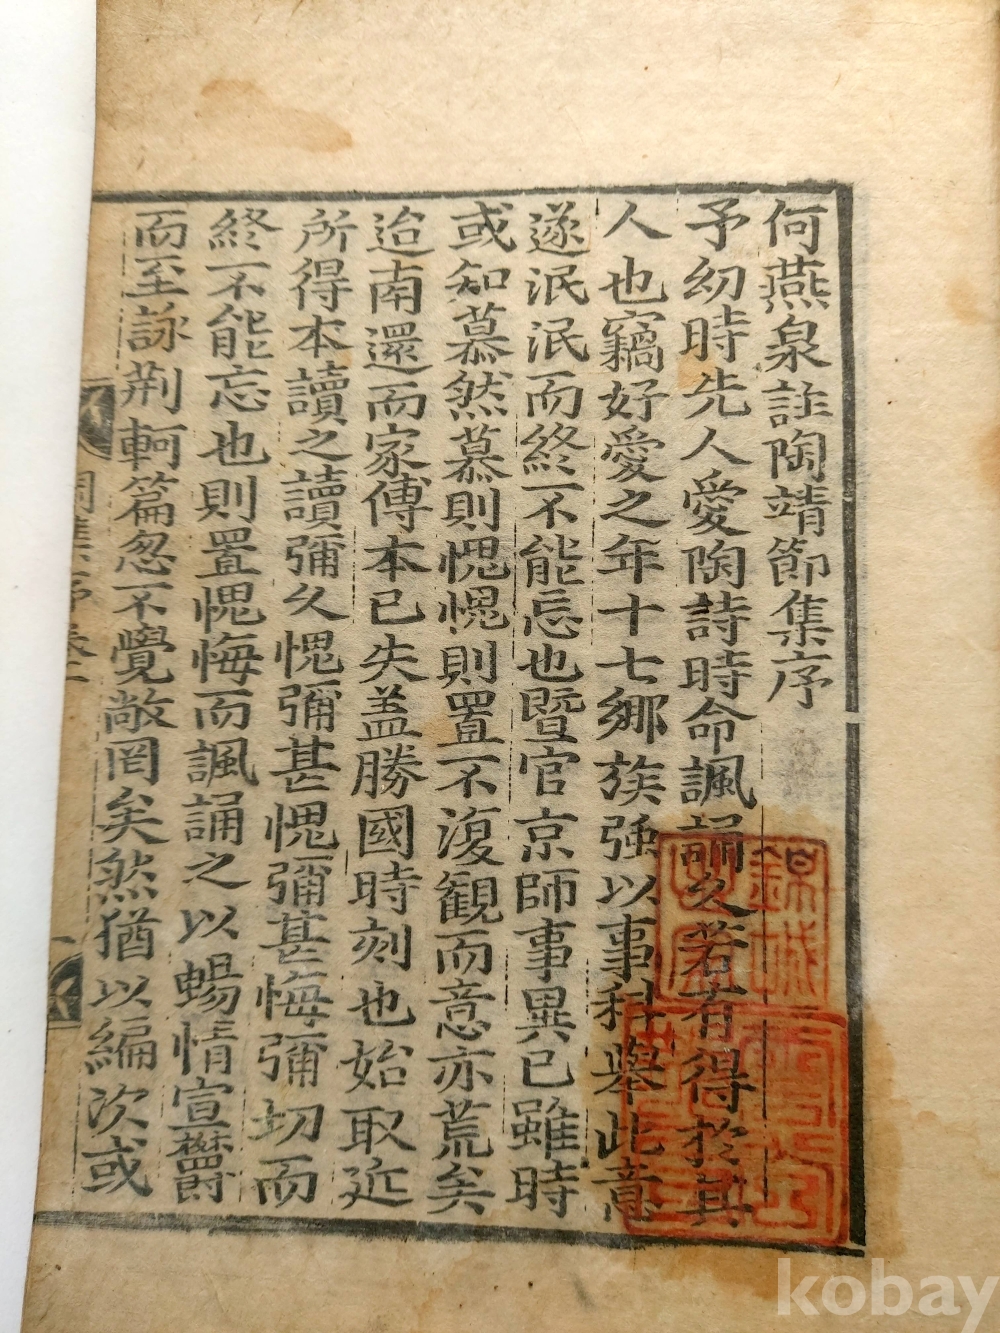 何燕泉註陶靖節集序
予幼時先人愛陶詩時命諷誦久若有得於其
人也竊好愛之年十七鄉族强以事科擧此意
遂泯泯而終不能忘也曁官京師事異已雖時
或知慕然慕則愧愧則置不復觀而意亦荒矣
迨南還而家傳本已失盖勝國時刻也始取近
所得本讀之讀彌久愧彌甚愧彌甚悔彌切而
終不能忘也則置愧悔而諷誦之以暢情宣欝
而至詠荆軻篇忽不覺敞罔矣然猶以編次或
錦城
kobay